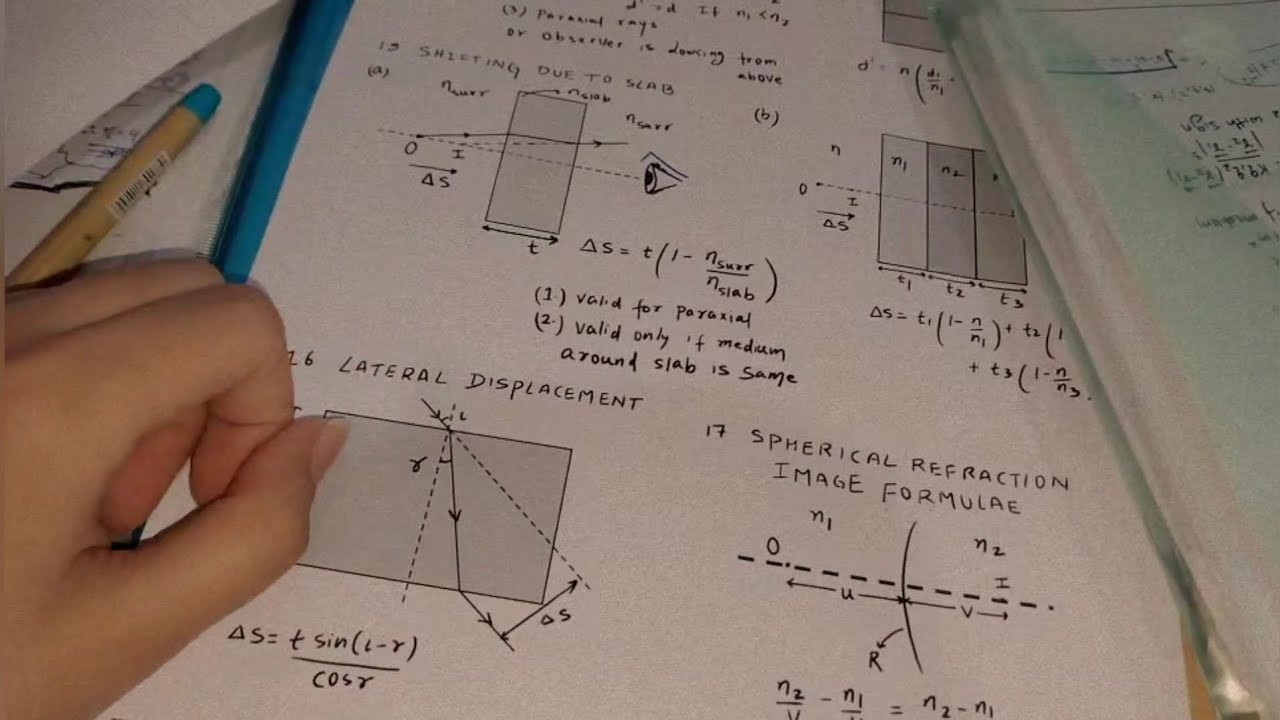 d' > d If n₁ < n₂
(3) Paraxial rays
or observer is looking from
above
15 SHIFTING DUE TO SLAB
(a)
n_surr
n_slab
n_surr
O
I
ΔS
t
ΔS = t(1 - n_surr/n_slab)
(1.) valid for paraxial
(2.) valid only if medium
around slab is same
d' = n(d₁/n₁
(b)
n
n₁
n₂
O
I
ΔS
t₁
t₂
t₃
ΔS = t₁(1-n/n₁) + t₂(1
+ t₃(1-n/n₃
16 LATERAL DISPLACEMENT
i
r
ΔS
ΔS = t sin(i-r)/cosr
17 SPHERICAL REFRACTION
IMAGE FORMULAE
n₁
n₂
O
I
u
v
R
n₂/v - n₁/u = n₂-n₁
with sign